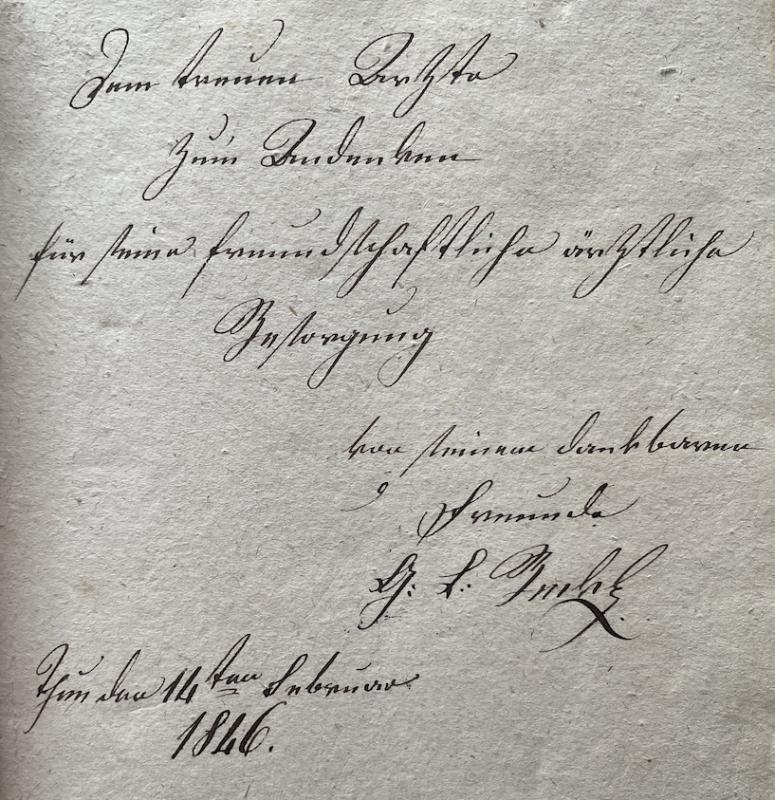 Dem treuen Arzte
zum Andenken
für seine freundschaftliche ärztliche
Besorgung
von seinem dankbaren
Freunde
G. L.
Thun den 14ten Februar
1846.